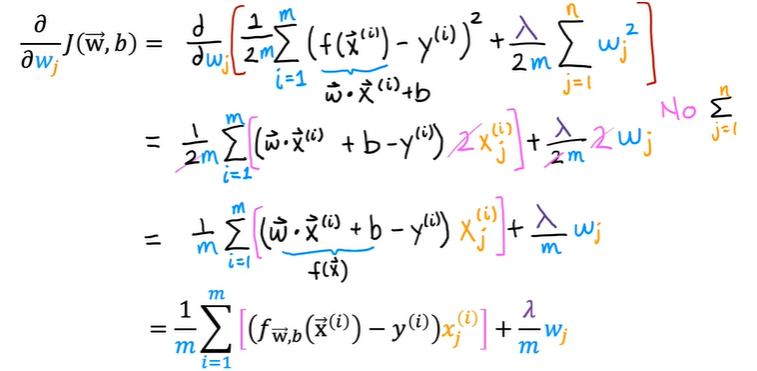 ∂/∂w_j J(w⃗, b) = ∂/∂w_j [ 1/2m ∑_{i=1}^{m} (f(x⃗^(i)) − y^(i))² + λ/2m ∑_{j=1}^{n} w_j² ]
w⃗ · x⃗^(i) + b
= 1/2m ∑_{i=1}^{m} [(w⃗ · x⃗^(i) + b − y^(i)) 2 x_j^(i)] + λ/2m 2 w_j No ∑_{j=1}^{n}
= 1/m ∑_{i=1}^{m} [(w⃗ · x⃗^(i) + b − y^(i)) x_j^(i)] + λ/m w_j
f(x⃗)
= 1/m ∑_{i=1}^{m} [(f_{w⃗,b}(x⃗^(i)) − y^(i)) x_j^(i)] + λ/m w_j